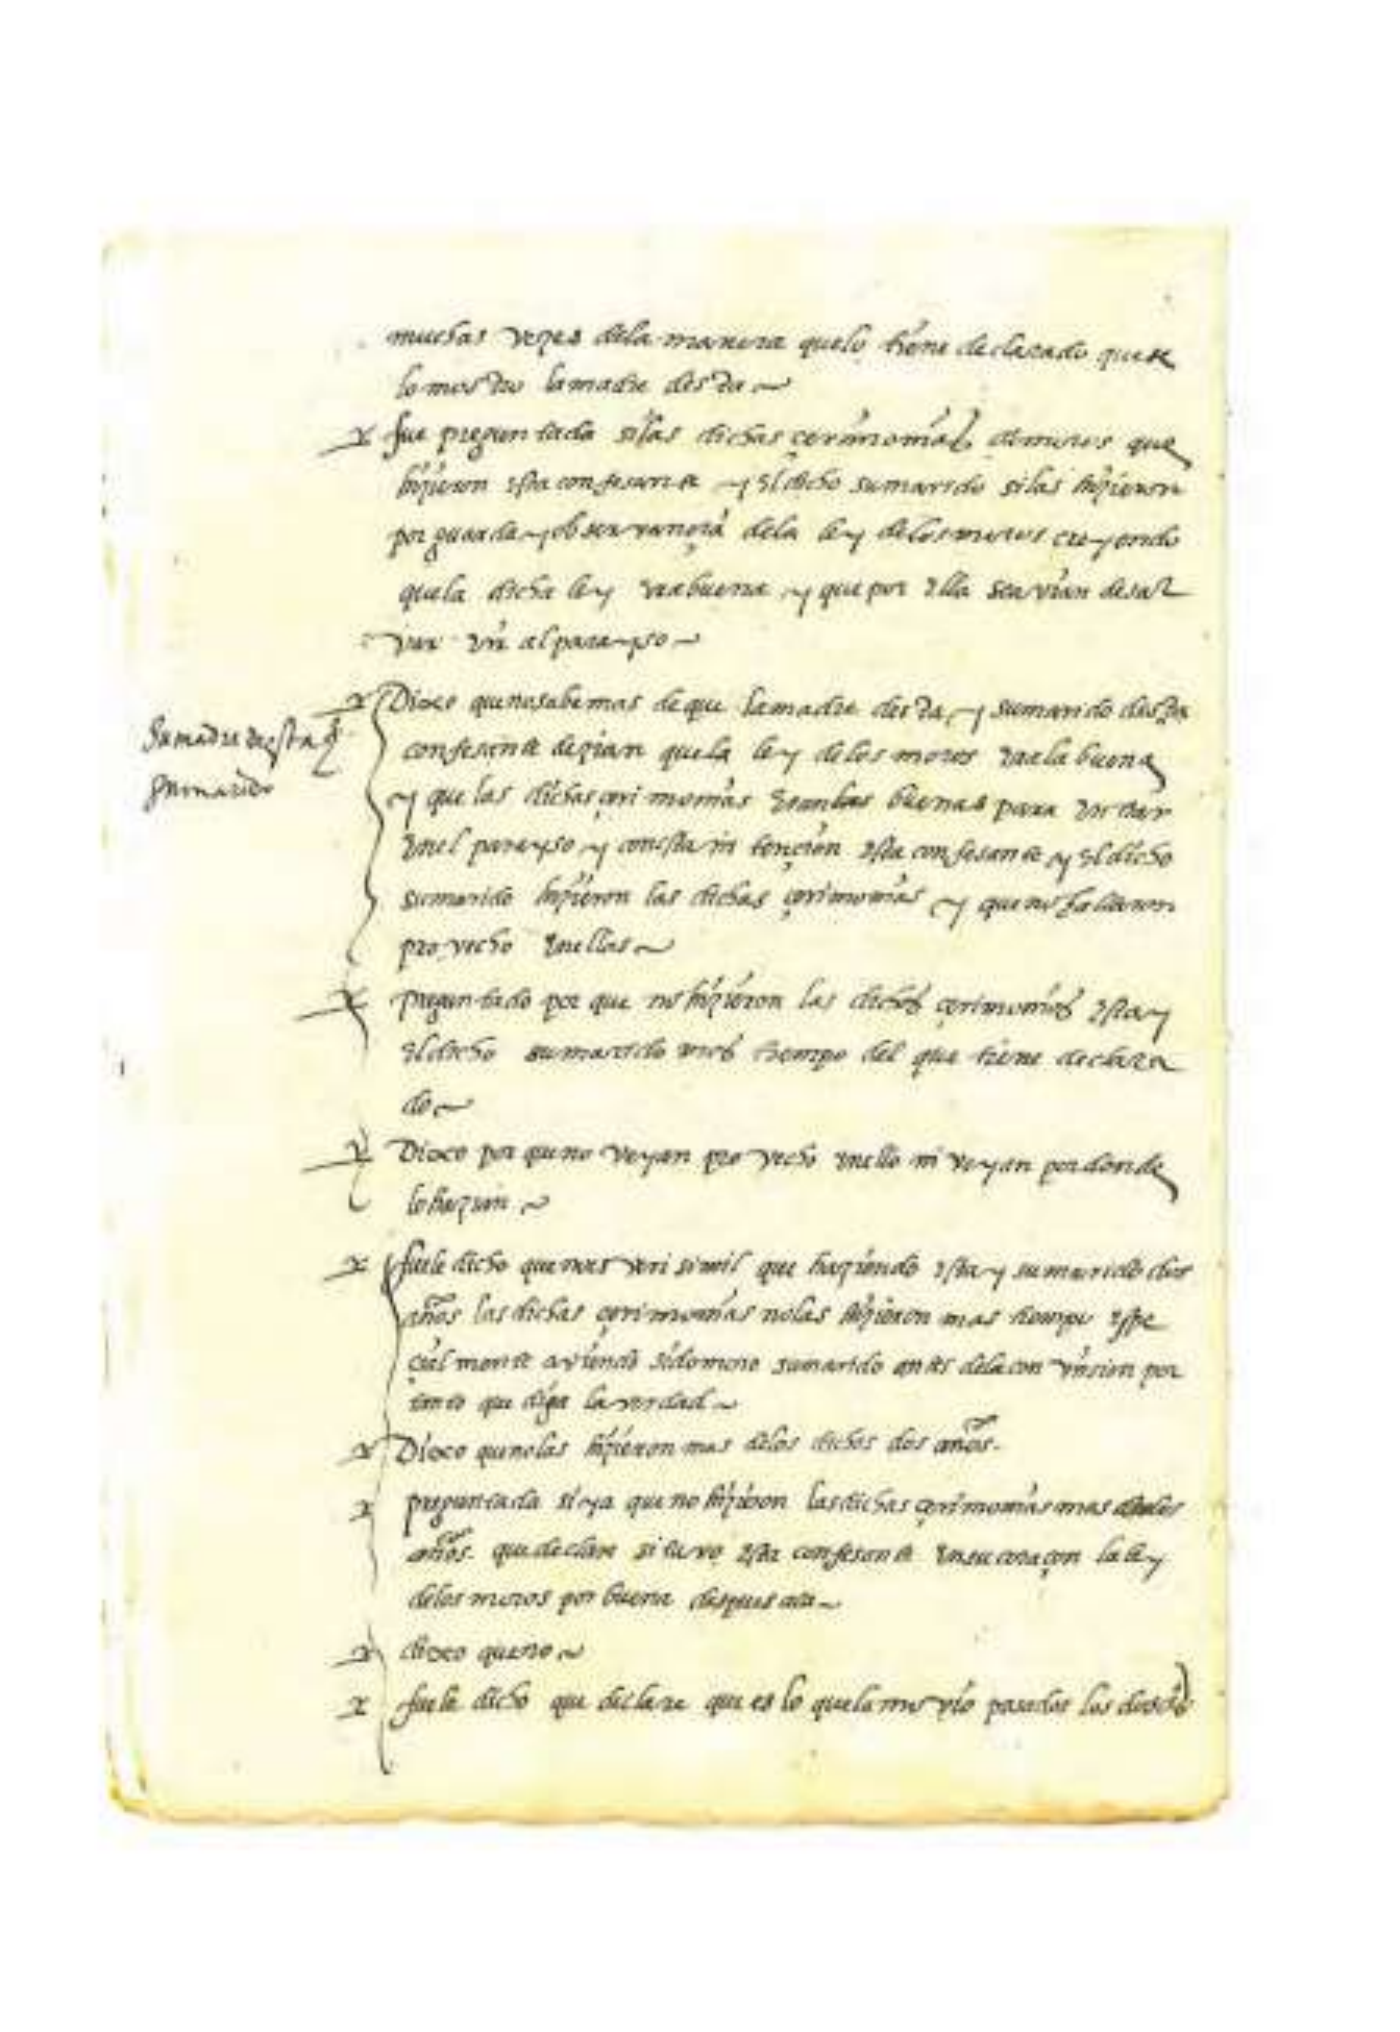 muchas vezes dela manera quelo tiene declarado que se
lo mostro lamadre desta
fue preguntada silas dichas çerimonias demoros que
hizieron esta confesante y el dicho sumarido silas hizieron
por guarda y observançia dela ley delosmoros creyendo
quela dicha ley era buena y que por ella seavian desal
var e yr al parayso
Dixo quenosabemas deque lamadre desta y sumarido desta
confesante dezian quela ley delos moros erala buena
sumadre desta y
sumarido
y que las dichas çerimonias eranlas buenas para entrar
enel parayso y conesta intençion esta confesante y el dicho
sumarido hizieron las dichas çerimonias y que no hallaron
provecho enellas
preguntado por que no hizieron las dichas çerimonias esta y
el dicho sumarido mas tiempo del que tiene declara
do
Dixo por queno veyan provecho enello ni veyan pordonde
lo hazian
fuele dicho que noes verisimil que haziendo esta y sumarido dos
años las dichas çerimonias nolas hizieron mas tiempo espe
çialmente aviendo sidomoro sumarido antes delaconversion por
tanto que diga la verdad
Dixo quenolas hizieron mas delos dichos dos años.
preguntada si ya que no hizieron lasdichas çerimonias mas delos
años. que declare si tuvo esta confesante ensucoraçon la ley
delos moros por buena despues aca
dixo queno
fuele dicho que declare que es lo quela movio pasados los